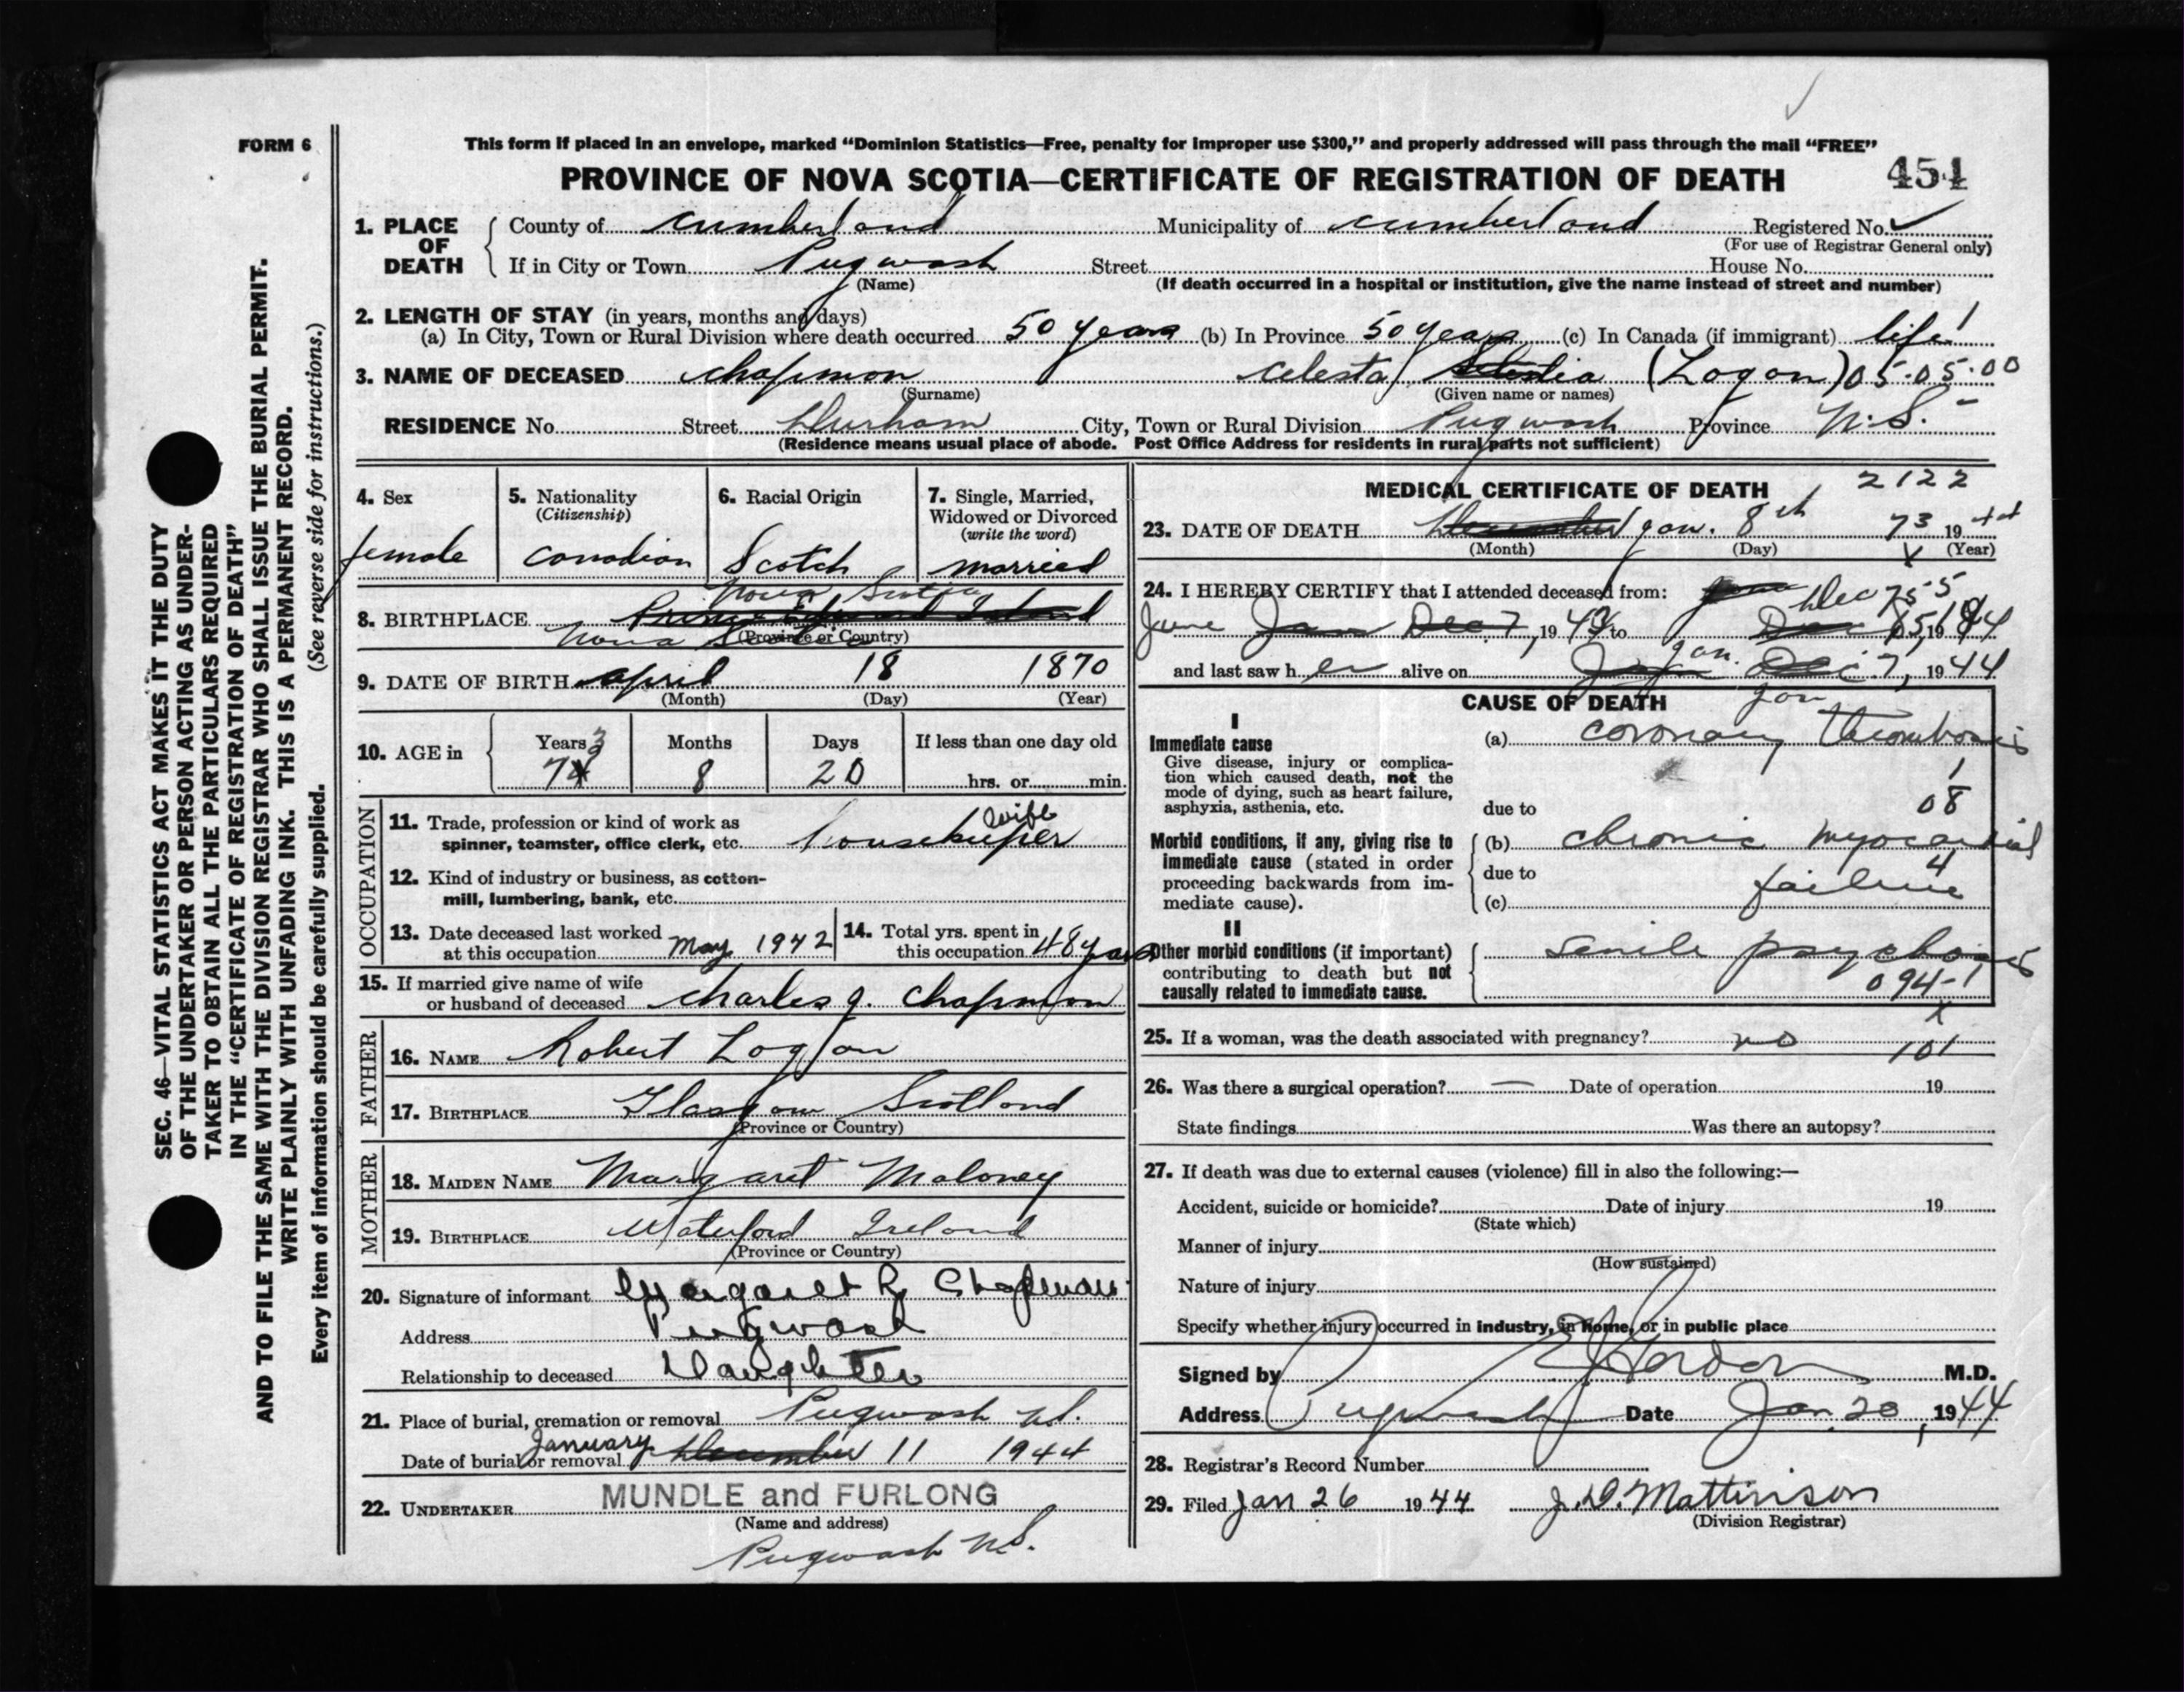 FORM 6
This form if placed in an envelope, marked “Dominion Statistics—Free, penalty for improper use $300,” and properly addressed will pass through the mail “FREE”
PROVINCE OF NOVA SCOTIA—CERTIFICATE OF REGISTRATION OF DEATH 451
1. PLACE OF DEATH
County of Cumberland Municipality of Cumberland Registered No.
(For use of Registrar General only)
If in City or Town Pugwash Street House No.
(Name) (If death occurred in a hospital or institution, give the name instead of street and number)
2. LENGTH OF STAY (in years, months and days)
(a) In City, Town or Rural Division where death occurred 50 years (b) In Province 50 years (c) In Canada (if immigrant) life
3. NAME OF DECEASED Chapman Celesta (Logan) 05.05.00
(Surname) (Given name or names)
RESIDENCE No. Street Durham City, Town or Rural Division Pugwash Province N.S.
(Residence means usual place of abode. Post Office Address for residents in rural parts not sufficient)
4. Sex
female
5. Nationality
(Citizenship)
Canadian
6. Racial Origin
Scotch
7. Single, Married,
Widowed or Divorced
(write the word)
married
Nova Scotia
8. BIRTHPLACE Prince Edward Island
Nova Scotia (Province or Country)
9. DATE OF BIRTH April 18 1870
(Month) (Day) (Year)
10. AGE in
Years 73 Months 8 Days 20 If less than one day old
hrs. or min.
OCCUPATION
11. Trade, profession or kind of work as
spinner, teamster, office clerk, etc. housekeeper wife
12. Kind of industry or business, as cotton-
mill, lumbering, bank, etc.
13. Date deceased last worked
at this occupation May 1942
14. Total yrs. spent in
this occupation 48 years
15. If married give name of wife
or husband of deceased Charles J. Chapman
FATHER
16. NAME Robert Logan
17. BIRTHPLACE Glasgow Scotland
(Province or Country)
MOTHER
18. MAIDEN NAME Margaret Maloney
19. BIRTHPLACE Waterford Ireland
(Province or Country)
20. Signature of informant Margaret R Chapman
Address Pugwash
Relationship to deceased Daughter
21. Place of burial, cremation or removal Pugwash N.S.
Date of burial or removal January December 11 1944
22. UNDERTAKER MUNDLE and FURLONG
(Name and address)
Pugwash N.S.
MEDICAL CERTIFICATE OF DEATH 2122
23. DATE OF DEATH December Jan. 8th 73 1944
(Month) (Day) (Year)
24. I HEREBY CERTIFY that I attended deceased from:
June Jan Dec 7, 1943 to Dec 1944
and last saw her alive on Jan. Dec 7, 1944
CAUSE OF DEATH
Jan
I
Immediate cause
Give disease, injury or complica-
tion which caused death, not the
mode of dying, such as heart failure,
asphyxia, asthenia, etc.
(a) coronary thrombosis
1
08
due to
Morbid conditions, if any, giving rise to
immediate cause (stated in order
proceeding backwards from im-
mediate cause).
(b) chronic myocardial
4
due to
failure
(c)
II
Other morbid conditions (if important)
contributing to death but not
causally related to immediate cause.
senile psychosis
094-1
25. If a woman, was the death associated with pregnancy? no
101
26. Was there a surgical operation? — Date of operation 19
State findings Was there an autopsy?
27. If death was due to external causes (violence) fill in also the following:—
Accident, suicide or homicide? Date of injury 19
(State which)
Manner of injury
(How sustained)
Nature of injury
Specify whether injury occurred in industry, in home, or in public place
Signed by Gordon M.D.
Address Pugwash Date Jan. 20, 1944
28. Registrar's Record Number
29. Filed Jan 26 1944 J.D. Mattinson
(Division Registrar)
SEC. 46—VITAL STATISTICS ACT MAKES IT THE DUTY
OF THE UNDERTAKER OR PERSON ACTING AS UNDER-
TAKER TO OBTAIN ALL THE PARTICULARS REQUIRED
IN THE “CERTIFICATE OF REGISTRATION OF DEATH”
AND TO FILE THE SAME WITH THE DIVISION REGISTRAR WHO SHALL ISSUE THE BURIAL PERMIT.
WRITE PLAINLY WITH UNFADING INK. THIS IS A PERMANENT RECORD.
Every item of information should be carefully supplied. (See reverse side for instructions.)